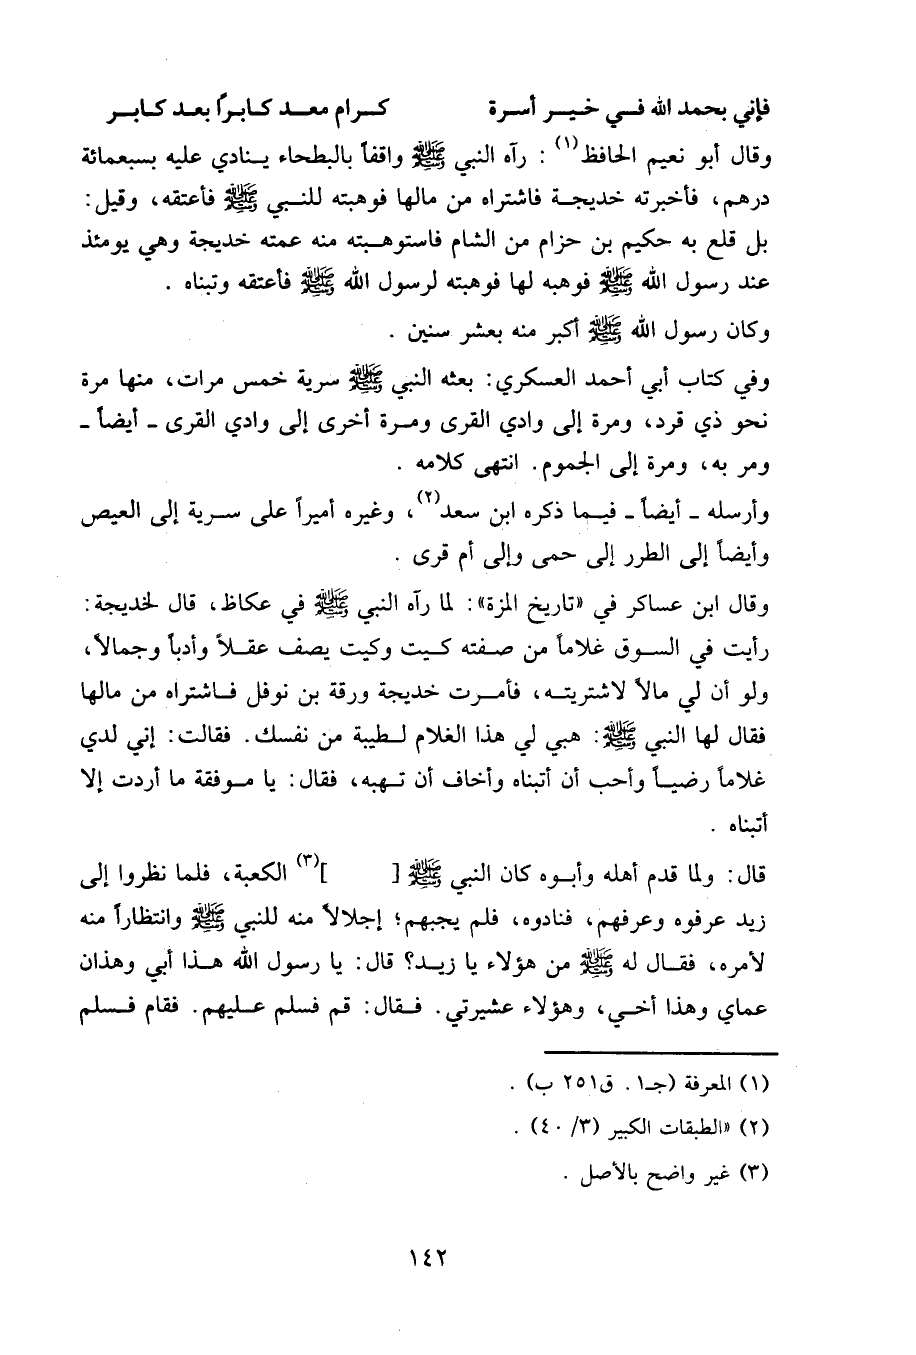 فإني بحمد الله فــي خيــر أسرة كــرام معــد كابرًا بعد كابــر
وقال أبو نعيم الحافظ(١) : رآه النبي ﷺ واقفاً بالبطحاء ينادي عليه بسبعمائة
درهم، فأخبرته خديجة فاشتراه من مالها فوهبته للنبي ﷺ فأعتقه، وقيل:
بل قلع به حكيم بن حزام من الشام فاستوهبته منه عمته خديجة وهي يومئذ
عند رسول الله ﷺ فوهبه لها فوهبته لرسول الله ﷺ فأعتقه وتبناه .
وكان رسول الله ﷺ أكبر منه بعشر سنين .
وفي كتاب أبي أحمد العسكري: بعثه النبي ﷺ سرية خمس مرات، منها مرة
نحو ذي قرد، ومرة إلى وادي القرى ومرة أخرى إلى وادي القرى ـ أيضاً ـ
ومر به، ومرة إلى الجموم. انتهى كلامه .
وأرسله ـ أيضاً ـ فيما ذكره ابن سعد(٢)، وغيره أميراً على سرية إلى العيص
وأيضاً إلى الطرر إلى حمى وإلى أم قرى .
وقال ابن عساكر في «تاريخ المزة»: لما رآه النبي ﷺ في عكاظ، قال لخديجة:
رأيت في السوق غلاماً من صفته كيت وكيت يصف عقلاً وأدباً وجمالاً،
ولو أن لي مالاً لاشتريته، فأمرت خديجة ورقة بن نوفل فاشتراه من مالها
فقال لها النبي ﷺ: هبي لي هذا الغلام لطيبة من نفسك. فقالت: إني لدي
غلاماً رضياً وأحب أن أتبناه وأخاف أن تهبه، فقال: يا موفقة ما أردت إلا
أتبناه .
قال: ولما قدم أهله وأبوه كان النبي ﷺ [ ](٣) الكعبة، فلما نظروا إلى
زيد عرفوه وعرفهم، فنادوه، فلم يجبهم؛ إجلالاً منه للنبي ﷺ وانتظاراً منه
لأمره، فقال له ﷺ من هؤلاء يا زيد؟ قال: يا رسول الله هذا أبي وهذان
عماي وهذا أخي، وهؤلاء عشيرتي. فقال: قم فسلم عليهم. فقام فسلم
(١) المعرفة (جـ١. ق٢٥١ ب) .
(٢) «الطبقات الكبير (٣/ ٤٠) .
(٣) غير واضح بالأصل .
١٤٢